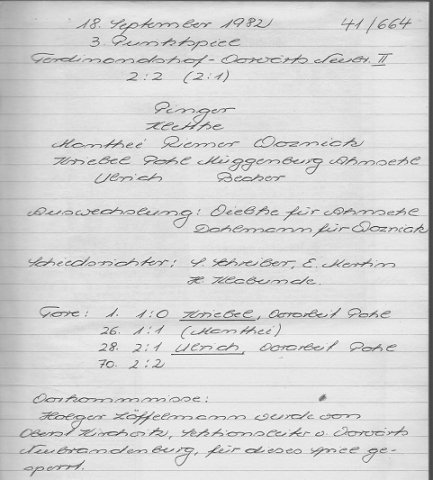 18. September 1982 41/664
3. Punktspiel
Ferdinandshof - Vorwärts Neubr. II
2:2 (2:1)
Penger
Klethe
Manthei Riemer Wozniack
Kniebel Pohl Müggenburg Ahmsehl
Ulrich Becher
Auswechslung: Diethe für Ahmsehl
Dahlmann für Wozniack
Schiedsrichter: S. Schreiber, E. Martin
H. Klabunde.
Tore: 1. 1:0 Kniebel, Vorarbeit Pohl
26. 1:1 (Manthei)
28. 2:1 Ulrich, Vorarbeit Pohl
70. 2:2
Vorkommnisse:
Holger Löffelmann wurde von
Oberst Sektionsleiter v. Vorwärts
Neubrandenburg, für dieses Spiel ge-
sperrt.